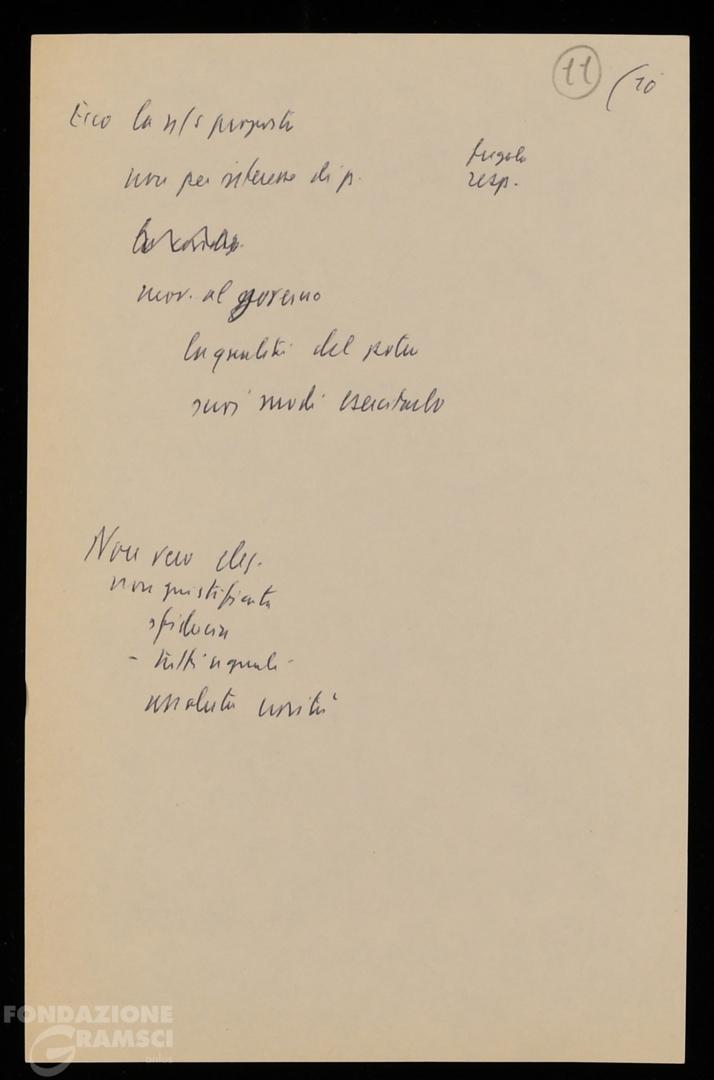 11 (10
Ecco la n/s proposta
non per interesse di p.
resp.
mov. al governo
la qualità del potere
suoi modi esercitarlo
Non vero che
non giustificata
sfiducia
- tutti uguali -
assoluta novità
FONDAZIONE
GRAMSCI
onlus